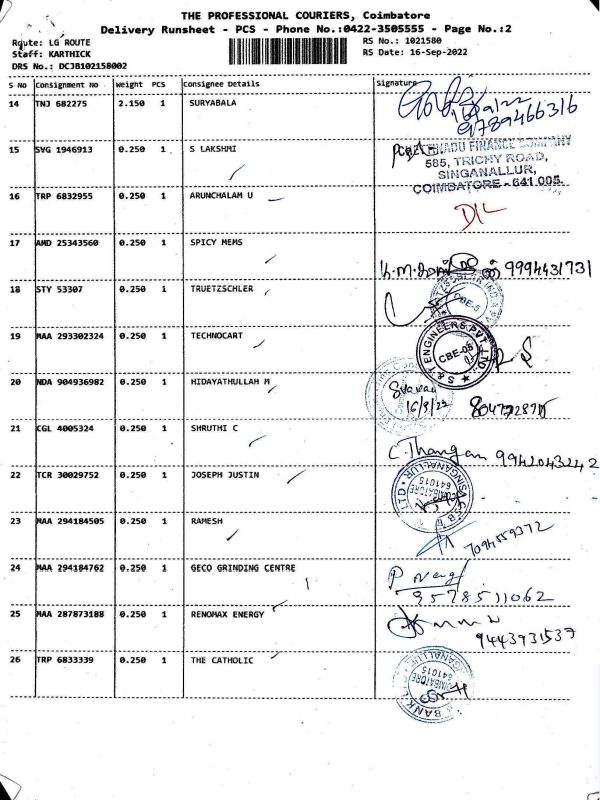 THE PROFESSIONAL COURIERS, Coimbatore
Delivery Runsheet - PCS - Phone No.:0422-3505555 - Page No.:2
Route: LG ROUTE
RS No.: 1021580
Staff: KARTHICK
RS Date: 16-Sep-2022
DRS No.: DCJB102158002
S No Consignment No Weight PCS Consignee Details Signature
14 TNJ 682275 2.150 1 SURYABALA
9789466316
15 SVG 1946913 0.250 1 S LAKSHMI
NADU FINANCE COMPANY
585, TRICHY ROAD,
SINGANALLUR,
COIMBATORE - 641 005.
16 TRP 6832955 0.250 1 ARUNCHALAM U
D/L
17 AMD 25343560 0.250 1 SPICY MEMS
9994431731
18 STY 53307 0.250 1 TRUETZSCHLER
CBE-5
19 MAA 293302324 0.250 1 TECHNOCART
S & T ENGINEERS PVT. LTD.
CBE-05
20 NDA 904936982 0.250 1 HIDAYATHULLAH M
16/9/22
21 CGL 4005324 0.250 1 SHRUTHI C
C. Thangam 9942043242
22 TCR 30029752 0.250 1 JOSEPH JUSTIN
SINGANALLUR
COIMBATORE
641015
23 MAA 294184505 0.250 1 RAMESH
7094559372
24 MAA 294184762 0.250 1 GECO GRINDING CENTRE
9578511062
25 MAA 287873188 0.250 1 RENOMAX ENERGY
9443931537
26 TRP 6833339 0.250 1 THE CATHOLIC
COIMBATORE
641015